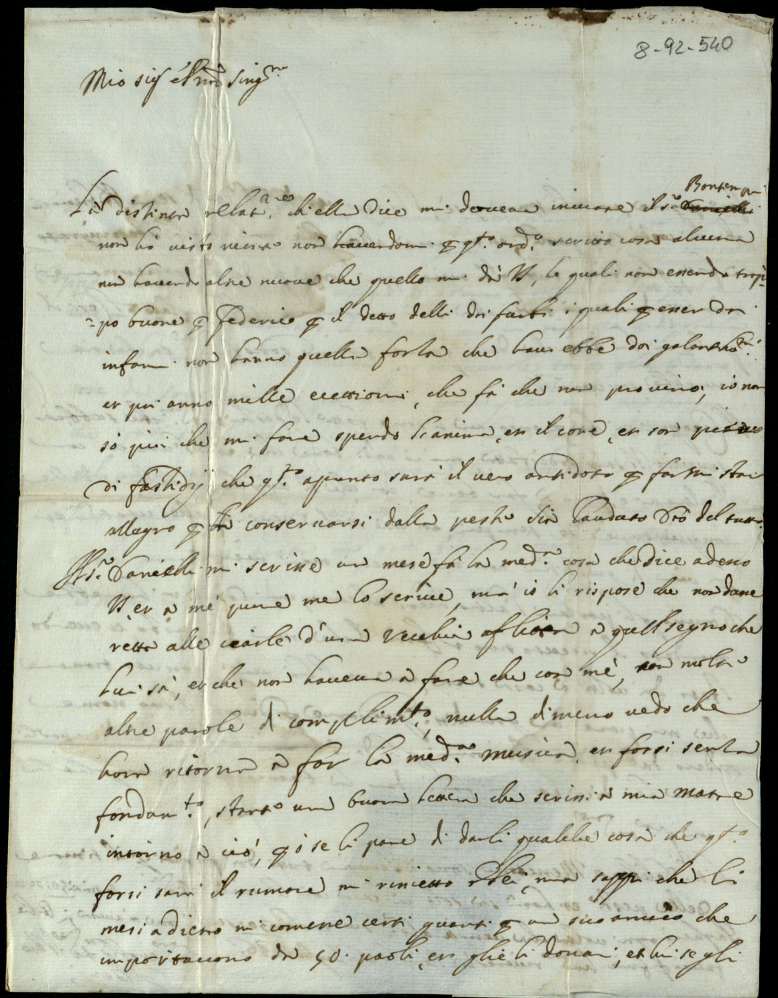 8-92-540
Mio sigr e Pron Singmo
Bontempi
La distinta relatne ch'ella dice mi doveva inviare il sr
non hò visto havendomi p qto ordo scritto cosa alcuna
nè havendo altre nuove che quello mi dà VS, le quali non essendo trop-
=po buone p Federico p il detto delli dui furbi i quali p esser doi
infami non hanno quella forza che havrebbe doi galanthomi
et poi anno mille eccettioni, che fà che non provino, io non
sò più che mi fare spendo l'anima, et il core, et son
di fastidij che qto apunto sarà il vero antidoto p farmi star
allegro p conservarsi dalla peste sia laudato Dio del tutto.
Il sr Danielli mi scrisse un mese fà la meda cosa che dice adesso
VS, et a me pure me lo scrive, mà io li rispose che non dasse
retta alle ciarle d'una vecchia aflitta a quel segno che
lui sà, et che non haveva à fare che con mè, con molte
altre parole di complimto, nulla dimeno vedo che
hora ritorna à far la meda musica, et forsi senza
fondamto, stante una buona lettera che scrissi a mia Matre
intorno a ciò, però se li pare di darli qualche cosa che qto
forsi sarà il rumore mi rimetto a lei, ma sappi che li
mesi adietro mi comesse certi quarti p un suo amico che
importaccono da 50 paoli, et glie li donai, et lui se gli